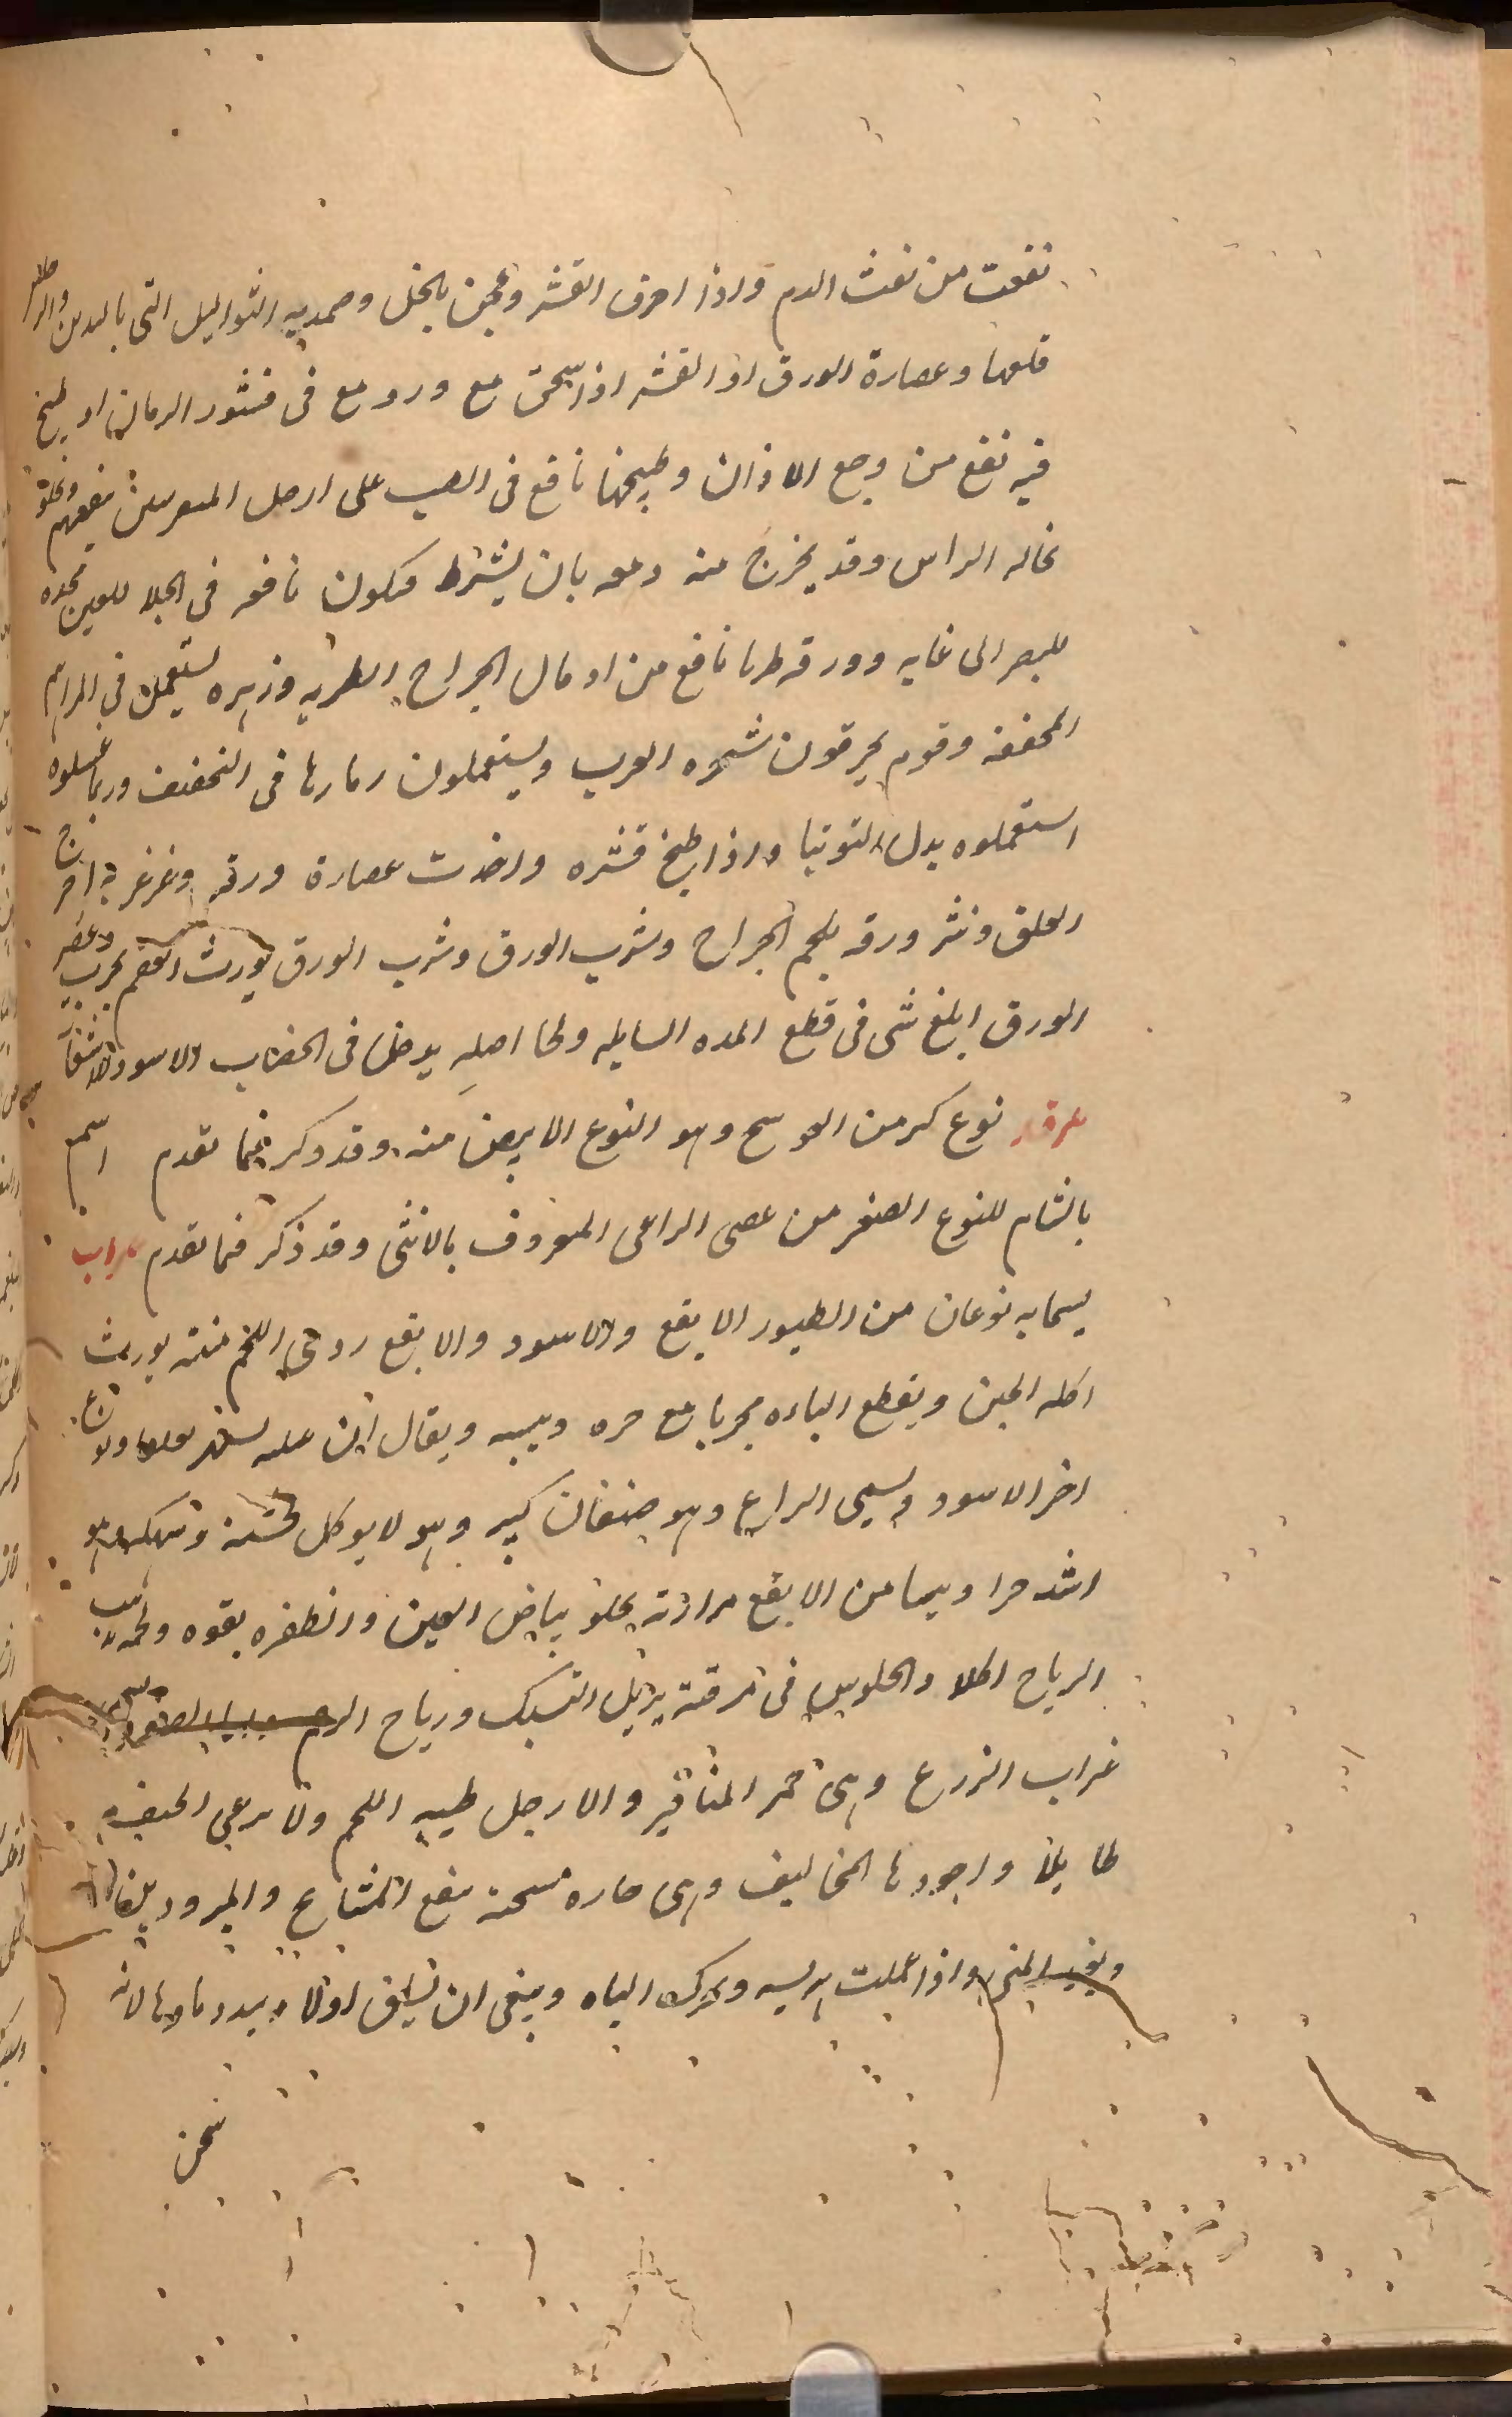 نفعت من نفث الدم واذا احرق القشر وعجن بالخل وضمد به الثواليل التى باليدين والرجلين
قلعها وعصارة الورق او القشر اذا سحق مع ورد مع فى قشور الرمان او طبخ
فيه نفع من وجع الاذان وطبيخها نافع فى الصب على ارجل المنقرسين ينفعهم
نخاله الراس وقد يخرج منه دمعه بان يشرط فتكون نافعه فى الجلا للعين محده
للبصر الى غايه وورقه طريا نافع من ادمال الجراح الطريه وزهره يستعمل فى المراهم
المجففه وقوم يحرقون شجره الغرب ويستعملون رمادها فى التجفيف وربما غسلوه
استعملوه بدل التوتيا واذا طبخ قشره واخذت عصارة ورقه وغرغر به اخرج
العلق ونثر ورقه يلحم الجراح وشرب الورق وشرب الورق يورث العقم مجرب وعصر
الورق ابلغ شى فى قطع المده السايله ولحا اصله يدخل فى الخضاب الاسود
غرقد نوع كبر من العوسج وهو النوع الابيض منه وقد ذكر فيما تقدم اسم
بالشام للنوع الصغير من عصى الراعى المعروف بالانثى وقد ذكر فما تقدم غراب
يسما به نوعان من الطيور الابقع والاسود والابقع ردى اللحم منتنه يورث
اكله الجبن ويقطع الباه مجربا مع حره ويبسه ويقال ان
اخر الاسود ويسمى الزاغ وهو صنفان كبير وهو لا يوكل
اشد حرا ويبسا من الابقع مرارته يجلو بياض العين والظفره بقوه ولحمه يذيب
الرياح اكلا والجلوس فى مرقته يزيل التسبك ورياح الرحم
غراب الزرع وهى حمر المناقير والارجل طيبه اللحم ولا ترعى الجيف
طايلا واجودها المخاليف وهى حاره مسخنه ينفع المشايخ والمبرودين
ويفيد المنى واذا عملت هريسه ويحرك الباه وينبغى ان تسلق اولا ويبدد ماوها لانه
سخن